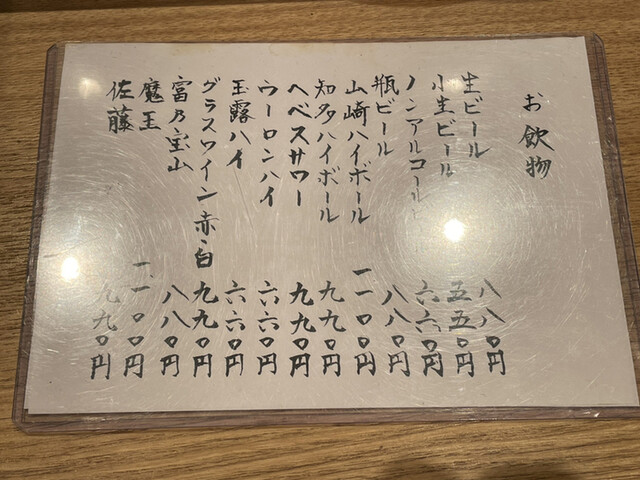 お飲物
生ビール 八八〇円
小生ビール 五五〇円
ノンアルコール 六六〇円
瓶ビール 八八〇円
山崎ハイボール 一一〇〇円
知多ハイボール 九九〇円
ヘベスサワー 九九〇円
ウーロンハイ 六六〇円
玉露ハイ 六六〇円
グラスワイン赤・白 九九〇円
富乃宝山 八八〇円
魔王 一一〇〇円
佐藤 九九〇円